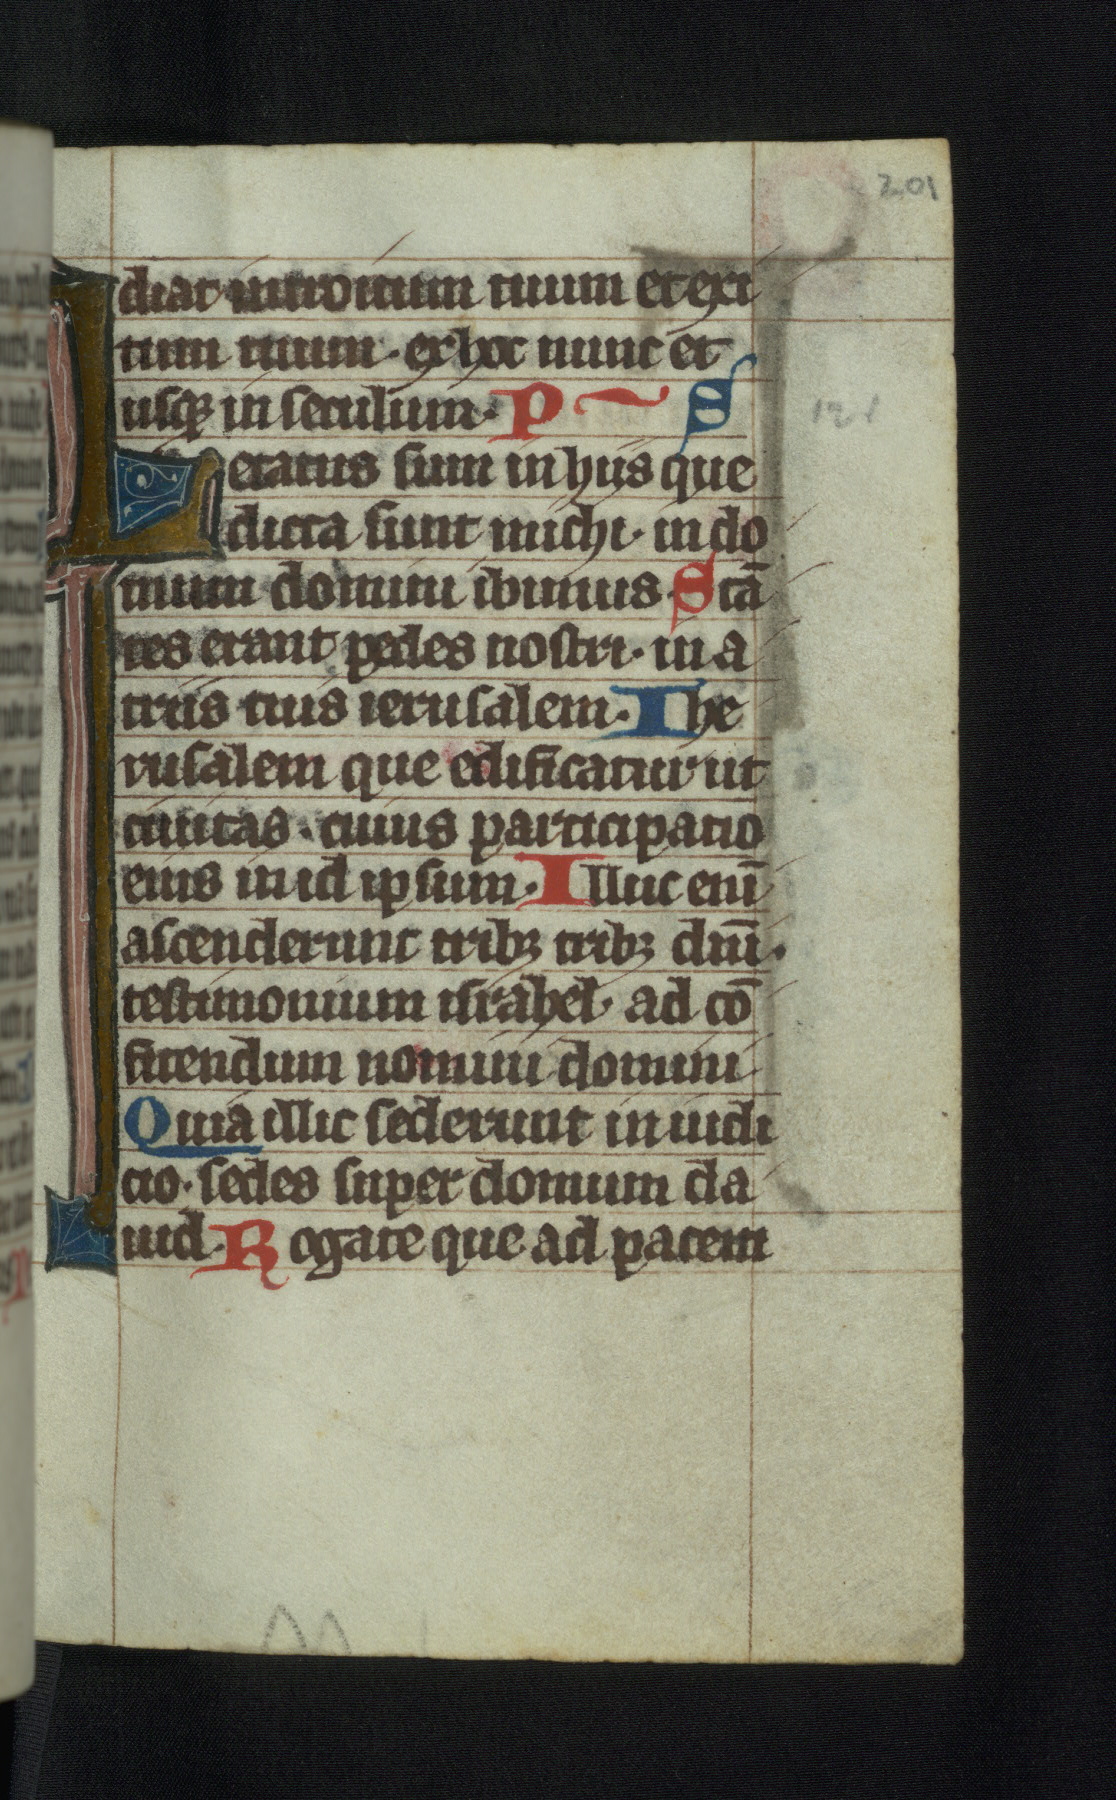 201
diat introitum tuum et exi
tum tuum · ex hoc nunc et
usqꝫ in seculum · P S
Letatus sum in hiis que
dicta sunt michi · in do
mum domini ibimus · Stā
tes erant pedes nostri · in a
triis tuis ierusalem · Ihe
rusalem que edificatur ut
ciuitas · cuius participatio
eius in id ipsum · Illuc enī
ascenderunt tribꝫ tribꝫ dnī ·
testimonium israhel · ad cō
fitendum nomini domini
Quia illic sederunt in iudi
cio · sedes super domum da
uid · Rogate que ad pacem
121